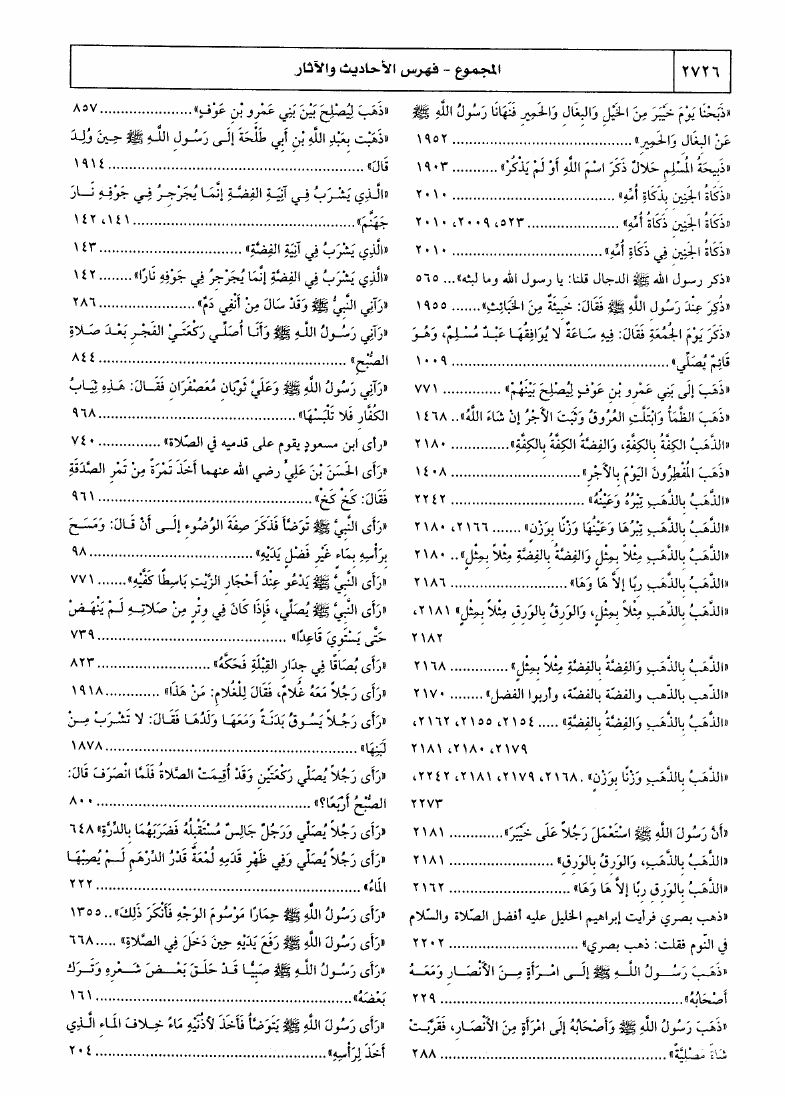 ٢٧٢٦
المجموع - فهرس الأحاديث والآثار
«ذَبَحْنَا يَوْمَ خَيْبَرَ مِنَ الخَيْلِ وَالبِغَالِ وَالحَمِيرِ فَنَهَانَا رَسُولُ اللهِ ﷺ
عَنْ البِغَالِ وَالحَمِيرِ» ........ ١٩٥٢
«ذَبِيحَةُ المُسْلِمِ حَلاَلٌ ذَكَرَ اسْمَ اللَّهِ أَوْ لَمْ يَذْكُرْ» ........ ١٩٠٣
«ذَكَاةُ الجَنِينِ بِذَكَاةِ أُمِّهِ» ........ ٢٠١٠
«ذَكَاةُ الجَنِينِ ذَكَاةُ أُمِّهِ» ........ ٥٢٣، ٢٠٠٩، ٢٠١٠
«ذَكَاةُ الجَنِينِ فِي ذَكَاةِ أُمِّهِ» ........ ٢٠١٠
«ذكر رسول الله ﷺ الدجال قلنا: يا رسول الله وما لبثه» ... ٥٦٥
«ذُكِرَ عِنْدَ رَسُولِ اللهِ ﷺ فَقَالَ: خَبِيثَةٌ مِنَ الخَبَائِثِ» ....... ١٩٥٥
«ذَكَرَ يَوْمَ الجُمُعَةِ فَقَالَ: فِيهِ سَاعَةٌ لاَ يُوَافِقُهَا عَبْدٌ مُسْلِمٌ، وَهُوَ
قَائِمٌ يُصَلِّي» ........ ١٠٠٩
«ذَهَبَ إلَى بَنِي عَمْرِو بْنِ عَوْفٍ لِيُصْلِحَ بَيْنَهُمْ» ........ ٧٧١
«ذَهَبَ الظَّمَأُ وَابْتَلَّتِ العُرُوقُ وَثَبَتَ الأَجْرُ إنْ شَاءَ اللَّهُ» .. ١٤٦٨
«الذَّهَبُ الكِفَّةُ بِالكِفَّةِ، وَالفِضَّةُ الكِفَّةُ بِالكِفَّةِ» ........ ٢١٨٠
«ذَهَبَ المُفْطِرُونَ اليَوْمَ بِالأَجْرِ» ........ ١٤٠٨
«الذَّهَبُ بِالذَّهَبِ تِبْرُهُ وَعَيْنُهُ» ........ ٢٢٤٢
«الذَّهَبُ بِالذَّهَبِ تِبْرُهَا وَعَيْنُهَا وَزْنًا بِوَزْنٍ» ....... ٢١٦٦، ٢١٨٠
«الذَّهَبُ بِالذَّهَبِ مِثْلاً بِمِثْلٍ وَالفِضَّةُ بِالفِضَّةِ مِثْلاً بِمِثْلٍ» .. ٢١٨٠
«الذَّهَبُ بِالذَّهَبِ رِبًا إلاَّ هَا وَهَا» ........ ٢١٨٦
«الذَّهَبُ بِالذَّهَبِ مِثْلاً بِمِثْلٍ، وَالوَرِقُ بِالوَرِقِ مِثْلاً بِمِثْلٍ» ٢١٨١،
٢١٨٢
«الذَّهَبُ بِالذَّهَبِ وَالفِضَّةُ بِالفِضَّةِ مِثْلاً بِمِثْلٍ» ........ ٢١٦٨
«الذهب بالذهب والفضة بالفضة، وأربوا الفضل» ........ ٢١٧٠
«الذَّهَبُ بِالذَّهَبِ وَالفِضَّةُ بِالفِضَّةِ» ..... ٢١٥٤، ٢١٥٥، ٢١٦٢،
٢١٧٩، ٢١٨٠، ٢١٨١
«الذَّهَبُ بِالذَّهَبِ وَزْنًا بِوَزْنٍ» . ٢١٦٨، ٢١٧٩، ٢١٨١، ٢٢٤٢،
٢٢٧٣
«أَنَّ رَسُولَ اللَّهِ ﷺ اسْتَعْمَلَ رَجُلاً عَلَى خَيْبَرَ» ........ ٢١٨١
«الذَّهَبُ بِالذَّهَبِ، وَالوَرِقُ بِالوَرِقِ» ........ ٢١٨١
«الذَّهَبُ بِالوَرِقِ رِبًا إلاَّ هَا وَهَا» ........ ٢١٦٢
«ذهب بصري فرأيت إبراهيم الخليل عليه أفضل الصلاة والسّلام
في النوم فقلت: ذهب بصري» ........ ٢٢٠٢
«ذَهَبَ رَسُولُ اللهِ ﷺ إلَى امْرَأَةٍ مِنَ الأَنْصَارِ وَمَعَهُ
أَصْحَابُهُ» ........ ٢٢٩
«ذَهَبَ رَسُولُ اللهِ ﷺ وَأَصْحَابُهُ إلَى امْرَأَةٍ مِنَ الأَنْصَارِ، فَقَرَّبَتْ
شَاةً مَصْلِيَّةً» ........ ٢٨٨
«ذَهَبَ لِيُصْلِحَ بَيْنَ بَنِي عَمْرِو بْنِ عَوْفٍ» ........ ٨٥٧
«ذَهَبْت بِعَبْدِ اللَّهِ بْنِ أَبِي طَلْحَةَ إلَى رَسُولِ اللهِ ﷺ حِينَ وُلِدَ
قَالَ» ........ ١٩١٤
«الَّذِي يَشْرَبُ فِي آنِيَةِ الفِضَّةِ إنَّمَا يُجَرْجِرُ فِي جَوْفِهِ نَارَ
جَهَنَّمَ» ........ ١٤١، ١٤٢
«الَّذِي يَشْرَبُ فِي آنِيَةِ الفِضَّةِ» ........ ١٤٣
«الَّذِي يَشْرَبُ فِي الفِضَّةِ إنَّمَا يُجَرْجِرُ فِي جَوْفِهِ نَارًا» ........ ١٤٢
«رَآنِي النَّبِيُّ ﷺ وَقَدْ سَالَ مِنْ أَنْفِي دَمٌ» ........ ٢٨٦
«رَآنِي رَسُولُ اللهِ ﷺ وَأَنَا أُصَلِّي رَكْعَتَيْ الفَجْرِ بَعْدَ صَلاَةِ
الصُّبْحِ» ........ ٨٤٤
«رَآنِي رَسُولُ اللهِ ﷺ وَعَلَيَّ ثَوْبَانِ مُعَصْفَرَانِ فَقَالَ: هَذِهِ ثِيَابُ
الكُفَّارِ فَلاَ تَلْبَسْهَا» ........ ٩٦٨
«رأى ابن مسعودٍ يقوم على قدميه في الصّلاة» ........ ٧٤٠
«رَأَى الحَسَنَ بْنَ عَلِيٍّ رضي الله عنهما أَخَذَ تَمْرَةً مِنْ تَمْرِ الصَّدَقَةِ
فَقَالَ: كَخْ كَخْ» ........ ٩٦١
«رَأَى النَّبِيَّ ﷺ تَوَضَّأَ فَذَكَرَ صِفَةَ الوُضُوءِ إلَى أَنْ قَالَ: وَمَسَحَ
بِرَأْسِهِ بِمَاءٍ غَيْرِ فَضْلِ يَدَيْهِ» ........ ٩٨
«رَأَى النَّبِيَّ ﷺ يَدْعُو عِنْدَ أَحْجَارِ الزَّيْتِ بَاسِطًا كَفَّيْهِ» ....... ٧٧١
«رَأَى النَّبِيَّ ﷺ يُصَلِّي، فَإِذَا كَانَ فِي وِتْرٍ مِنْ صَلاَتِهِ لَمْ يَنْهَضْ
حَتَّى يَسْتَوِيَ قَاعِدًا» ........ ٧٣٩
«رَأَى بُصَاقًا فِي جِدَارِ القِبْلَةِ فَحَكَّهُ» ........ ٨٢٣
«رَأَى رَجُلاً مَعَهُ غُلاَمٌ، فَقَالَ لِلْغُلاَمِ: مَنْ هَذَا» ........ ١٩١٨
«رَأَى رَجُلاً يَسُوقُ بَدَنَةً وَمَعَهَا وَلَدُهَا فَقَالَ: لاَ تَشْرَبْ مِنْ
لَبَنِهَا» ........ ١٨٧٨
«رَأَى رَجُلاً يُصَلِّي رَكْعَتَيْنِ وَقَدْ أُقِيمَتْ الصَّلاَةُ فَلَمَّا انْصَرَفَ قَالَ:
الصُّبْحُ أَرْبَعًا؟» ........ ٨٠٠
«رَأَى رَجُلاً يُصَلِّي وَرَجُلٌ جَالِسٌ مُسْتَقْبِلُهُ فَضَرَبَهُمَا بِالدِّرَّةِ» ٦٤٨
«رَأَى رَجُلاً يُصَلِّي وَفِي ظَهْرِ قَدَمِهِ لُمْعَةٌ قَدْرُ الدِّرْهَمِ لَمْ يُصِبْهَا
المَاءُ» ........ ٢٢٢
«رَأَى رَسُولُ اللهِ ﷺ حِمَارًا مَوْسُومَ الوَجْهِ فَأَنْكَرَ ذَلِكَ» .. ١٣٥٥
«رَأَى رَسُولَ اللهِ ﷺ رَفَعَ يَدَيْهِ حِينَ دَخَلَ فِي الصَّلاَةِ» ..... ٦٦٨
«رَأَى رَسُولُ اللهِ ﷺ صَبِيًّا قَدْ حَلَقَ بَعْضَ شَعْرِهِ وَتَرَكَ
بَعْضَهُ» ........ ١٦١
«رَأَى رَسُولَ اللهِ ﷺ يَتَوَضَّأُ فَأَخَذَ لأُذُنَيْهِ مَاءً خِلاَفَ المَاءِ الَّذِي
أَخَذَ لِرَأْسِهِ» ........ ٢٠٤